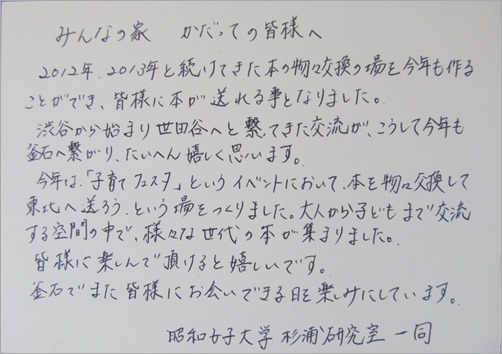 みんなの家　かだっての皆様へ
2012年、2013年と続けてきた本の物々交換の場を今年も作る
ことができ、皆様に本が送れる事となりました。
渋谷から始まり世田谷へと繋ってきた交流が、こうして今年も
釜石へ繋がり、たいへん嬉しく思います。
今年は、「子育てフェスタ」というイベントにおいて、本を物々交換して
東北へ送ろう、という場をつくりました。大人から子どもまで交流
する空間の中で、様々な世代の本が集まりました。
皆様に楽しんで頂けると嬉しいです。
釜石でまた皆様にお会いできる日を楽しみにしています。
昭和女子大学 杉浦研究室 一同